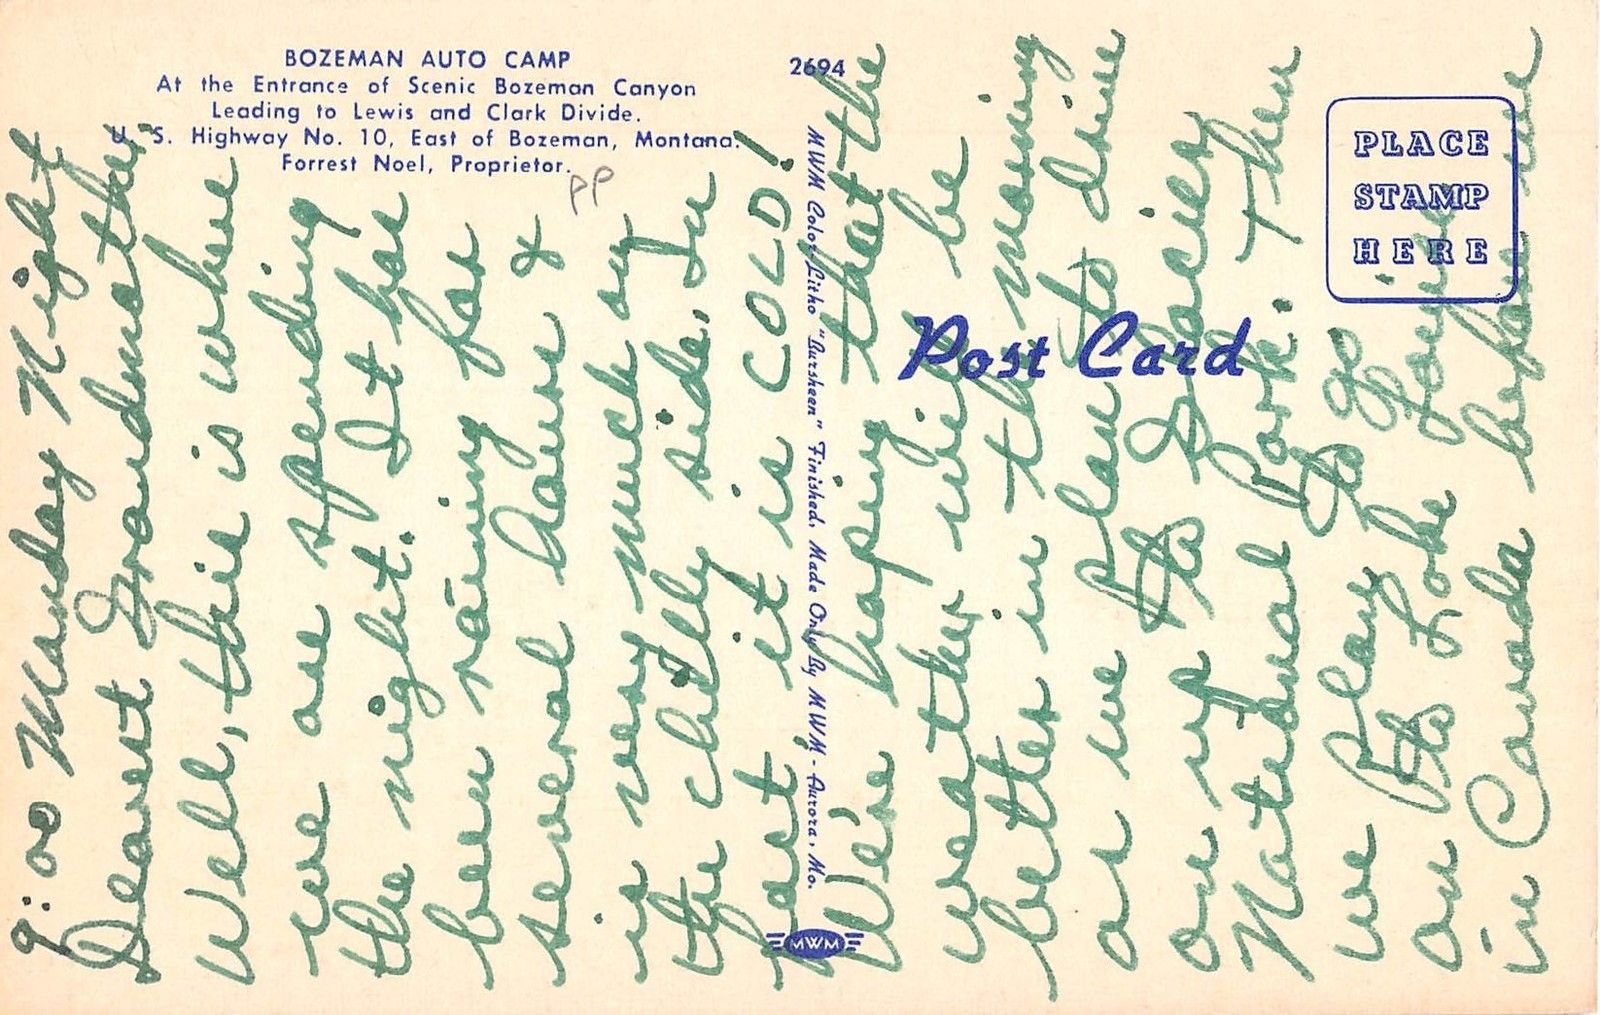 BOZEMAN AUTO CAMP
At the Entrance of Scenic Bozeman Canyon
Leading to Lewis and Clark Divide.
U. S. Highway No. 10, East of Bozeman, Montana.
Forrest Noel, Proprietor.
PP
2694
MWM Color-Litho "Bursheen" Finished, Made Only By MWM - Aurora, Mo.
MWM
Post Card
PLACE
STAMP
HERE
9:00 Monday Night
Dearest Grandmother,
Well, this is where
we are spending
the night. It has
been raining for
several hours &
is very much on
the chilly side. In
fact, it is COLD!
We're hoping that the
weather will be
better in the morning
as we plan to drive
on up to Glacier
National Park. Then
we plan to go
on to Lake Louise
in Canada before we